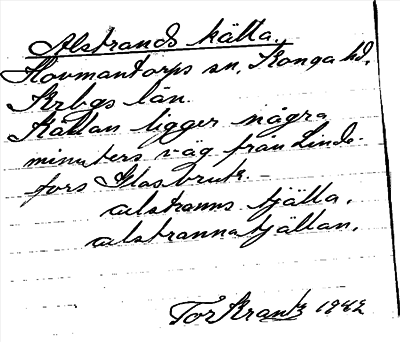 Alstrands källa.
Hovmantorps sn, Konga hd.
Krbgs län.
Källan ligger några
minuters väg från Linde-
fors Glasbruk. -
alstranns tjälla,
alstrannatjällan.
Tor Krantz 1942